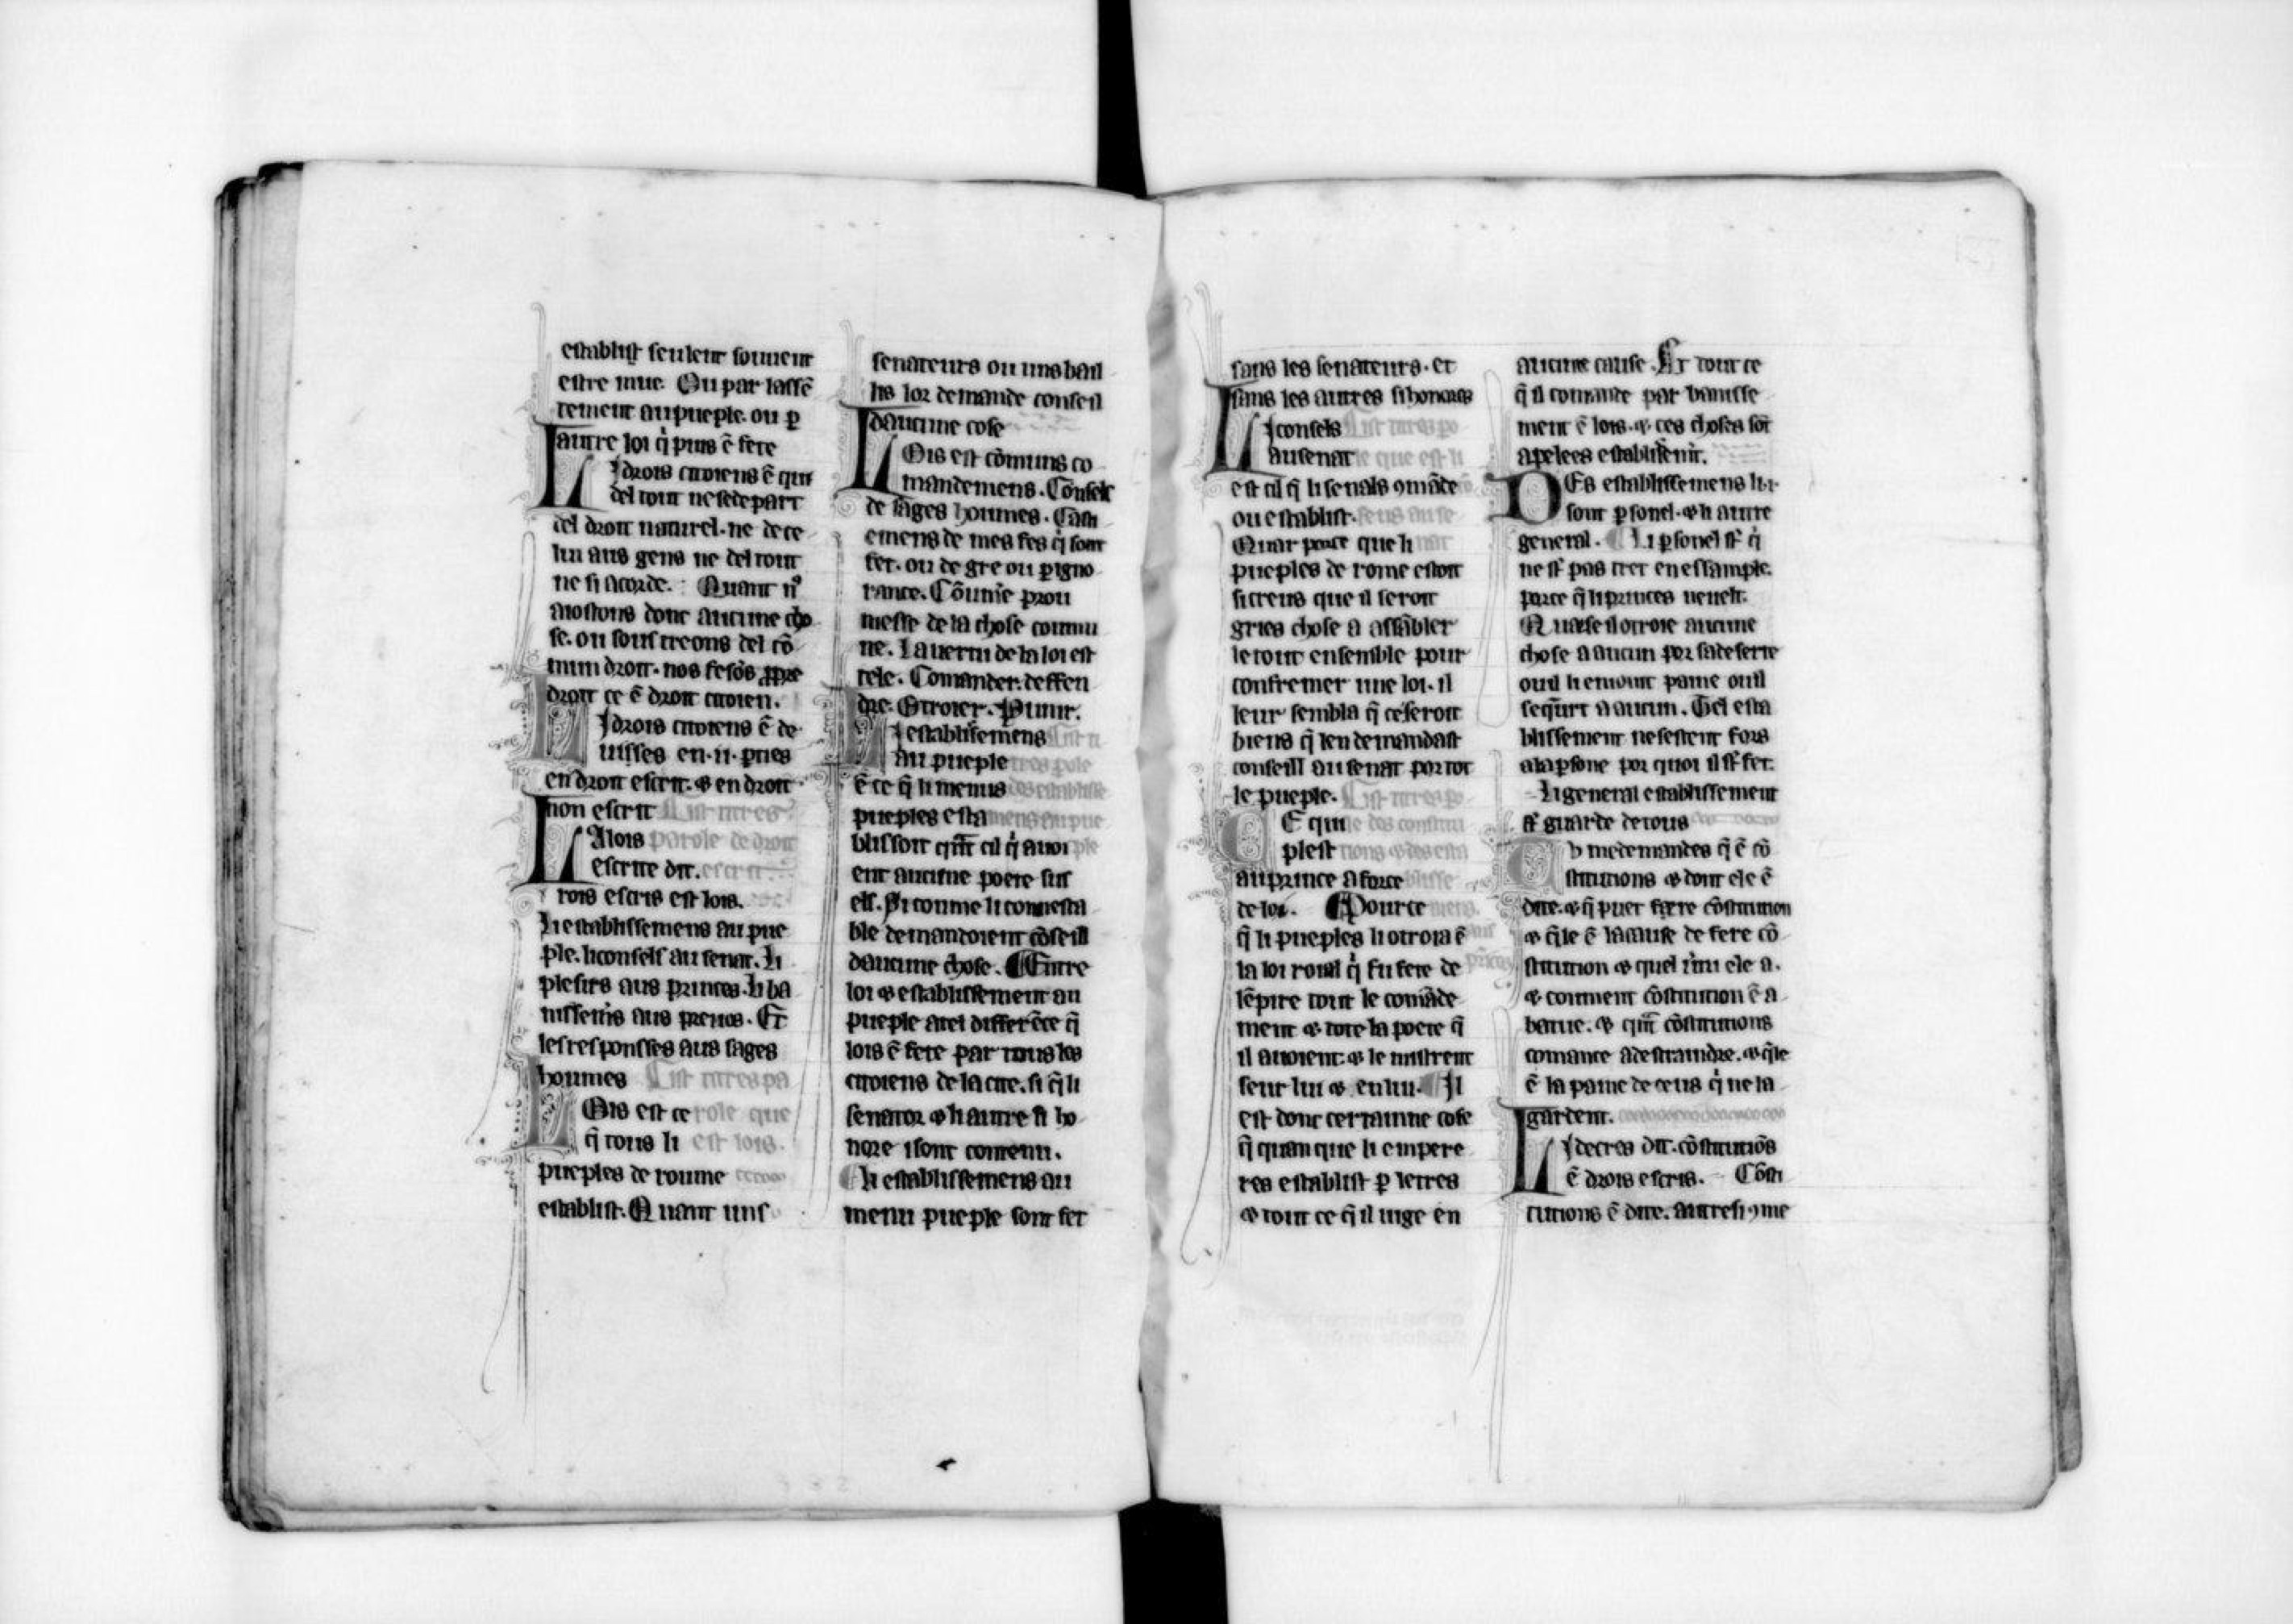 establist seulent souuent
estre mue. Ou par lassē
tement au pueple. ou ꝑ
autre loi q̇ puis ē fete
LI drois citoiens ē qui
del tout ne se depart
del droit naturel. ne de ce
lui aus gens ne del tout
ne si acorde. Quant nꝰ
aiostons donc aucune cho
se. ou soustreons del cō
mun droit. nos fesōs ꝓpre
droit ce ē droit citoien.
LI drois citoiens ē de
uisses en .ii. ꝑties
en droit escrit. ⁊ en droit
non escrit Cist titres
LA lois parole de droit
escrite dit. escrit.
rois escris est lois.
Li establissemens au pue
ple. li conselz au senat. Li
plesirs aus princes. Li ba
nissemēs aus preuos. Et
les responsses aus sages
houmes Cist titres pa
LOis est ce role que
q̄ tous li est lois.
pueples de roume
establist. Quant uns
senateurs ou uns bail
lis lor demande conseil
daucune cose
LOis est cōmuns co
mandemens. Conselz
de sages houmes. Casti
emens de mesfes q̇ sont
fet. ou de gre ou ꝑ igno
rance. Cōune prou
messe de la chose commu
ne. La uertu de la loi est
tele. Comander. deffen
dre. Otroier. Punir.
LI establissemens Cist ti
au pueple tres ꝑole
ē ce q̄ li menus des establisse
pueples esta mens au pue
blissoit qn̄t cil q̇ auoi ple
ent aucune poete sus
els. Si coume li connesta
ble demandoient cōseill
daucune chose. ¶ Entre
loi ⁊ establissement au
pueple a tel differēce q̄
lois ē fete par tous les
citoiens de la cite. si q̄ li
senator ⁊ li autre si ho
nore i sont contenu.
¶ Li establissemens au
menu pueple sont fet
sans les senateurs. et
sans les autres si honores
LI conselz Cist titres ꝑo
au senat le que est li
est cil q̄ li senats ꝯmāde
ou establist. seus au se
Quar parce que li nat
pueples de rome estoit
si creus que il seroit
gries chose a assābler
le tout ensemble pour
confremer une loi. il
leur sembla q̄ ce seroit
biens q̄ len demandast
conseill au senat por tot
le pueple. Cist titres ꝑo
CE qui le des constitu
plest tions ⁊ des esta
au prince a force blisse
de loi. ¶ Pour ce mens
q̄ li pueples li otroia ē
la loi roial q̇ fu fete de
lēpire tout le comāde
ment ⁊ tote la poete q̄
il auoient. ⁊ le mistrent
seur lui ⁊ en lui. ¶ Il
est donc certainne cose
q̄ quanque li empere
res establist ꝑ letres
⁊ tout ce q̄ il iuge en
aucune cause. Et tout ce
q̄ il comande par banisse
ment ē lois. ⁊ ces choses sōt
apelees establissemēt.
DEs establissemens li .i.
sont ꝑsonel. ⁊ li autre
general. ¶ Li ꝑsonel st̄ q̇
ne st̄ pas tret en essample.
parce q̄ li princes ne uelt.
Quar se il otroie aucune
chose a aucun por sa deserte
ou il li enioint paine ou il
seq̄urt a aucun. Tel esta
blissement ne sestent fors
a la ꝑsone por quoi il st̄ fet.
Li general establissement
st̄ guarde de tous
Tv me demandes q̄ ē cō
stitutions ⁊ dont ele ē
dite. ⁊ q̄ puet fere cōstitution
⁊ q̄le ē la cause de fere cō
stitution ⁊ quel uertu ele a.
⁊ comment cōstitution ē a
batue. ⁊ qn̄t cōstitutions
comance a destraindre. ⁊ q̄le
ē la paine de ceus q̇ ne la
gardent.
LI decres dit. cōstitutiōs
ē drois escris. Cōsti
tutions ē dite. autresi ꝯme